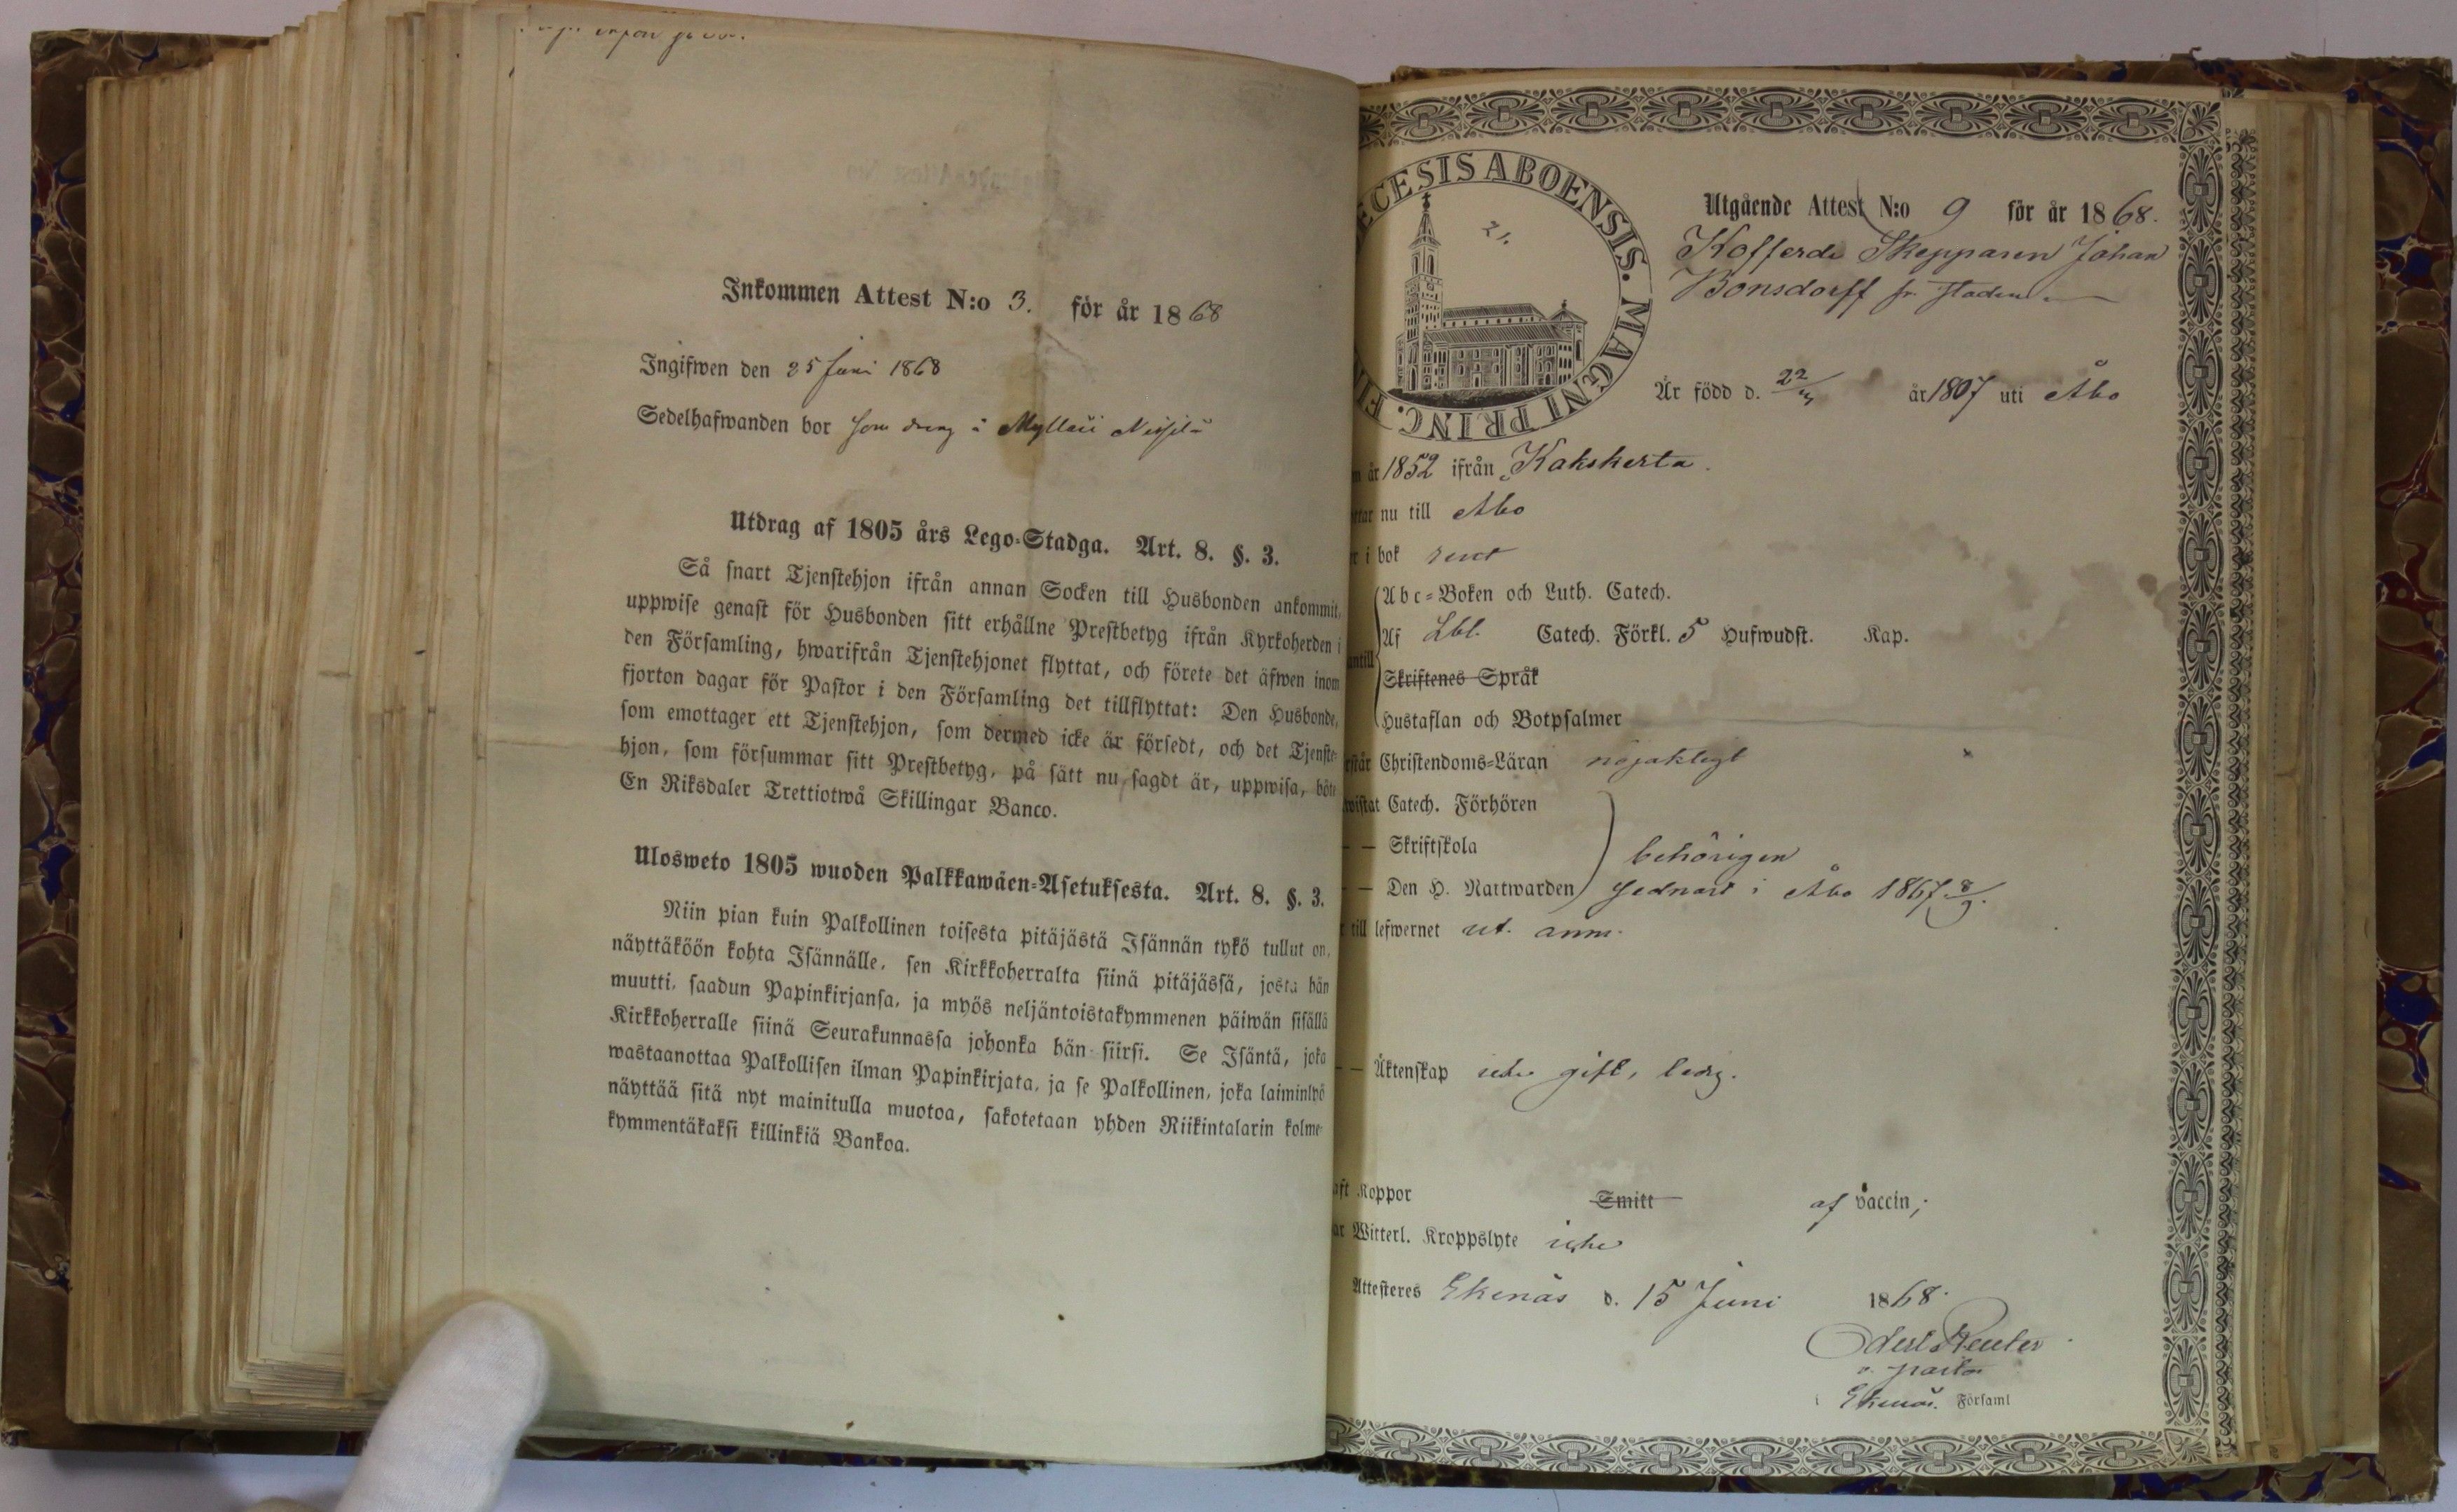 Inkommen Attest N:o 3. för år 1868
Ingifwen den 25 Juni 1868
Sedelhafwanden bor som dreng å
Utdrag af 1805 års Lego-Stadga. Art. 8. §. 3.
Så snart Tjenstehjon ifrån annan Socken till Husbonden ankommit,
uppwise genast för Husbonden sitt erhållne Prestbetyg ifrån Kyrkoherden i
den Församling, hwarifrån Tjenstehjonet flyttat, och förete det äfwen inom
fjorton dagar för Pastor i den Församling det tillflyttat: Den Husbonde,
som emottager ett Tjenstehjon, som dermed icke är försedt, och det Tjenste-
hjon, som försummar sitt Prestbetyg, på sätt nu sagdt är, uppwisa, böte
En Riksdaler Trettiotwå Skillingar Banco.
Ulosweto 1805 wuoden Palkkawäen-Asetuksesta. Art. 8. §. 3.
Niin pian kuin Palkollinen toisesta pitäjästä Isännän tykö tullut on,
näyttäköön kohta Isännälle, sen Kirkkoherralta siinä pitäjässä, josta hän
muutti, saadun Papinkirjansa, ja myös neljäntoistakymmenen päiwän sisällä
Kirkkoherralle siinä Seurakunnassa johonka hän siirsi. Se Isäntä, joka
wastaanottaa Palkollisen ilman Papinkirjata, ja se Palkollinen, joka laiminlyö
näyttää sitä nyt mainitulla muotoa, sakotetaan yhden Riikintalarin kolme-
kymmentäkaksi killinkiä Bankoa.
ECESIS ABOENSIS. MAGNI PRINC. FI
21.
Utgående Attest N:o 9 för år 1868.
Kofferdi Skepparen Johan
Bonsdorff fr. staden
Är född d. 22/ år 1807 uti Åbo
år 1852 ifrån Kakskerta.
nu till Åbo
i bok rent
Abc-Boken och Luth. Catech.
Af Lbl. Catech. Förkl. 5 Hufwudst. Kap.
antill
Skriftenes Språk
Hustaflan och Botpsalmer
rstår Christendoms-Läran nöjaktigt
wistat Catech. Förhören
— Skriftskola behörigen
— Den H. Nattwarden sednast i Åbo 1867 8/9.
till lefwernet ut. anm.
— Äktenskap icke gift, ledig.
aft Koppor Smitt af vaccin;
ar Witterl. Kroppslyte icke
Attesteres Ekenäs d. 15 Juni 1868.
Reuter
v. pastor
i Ekenäs. Församl